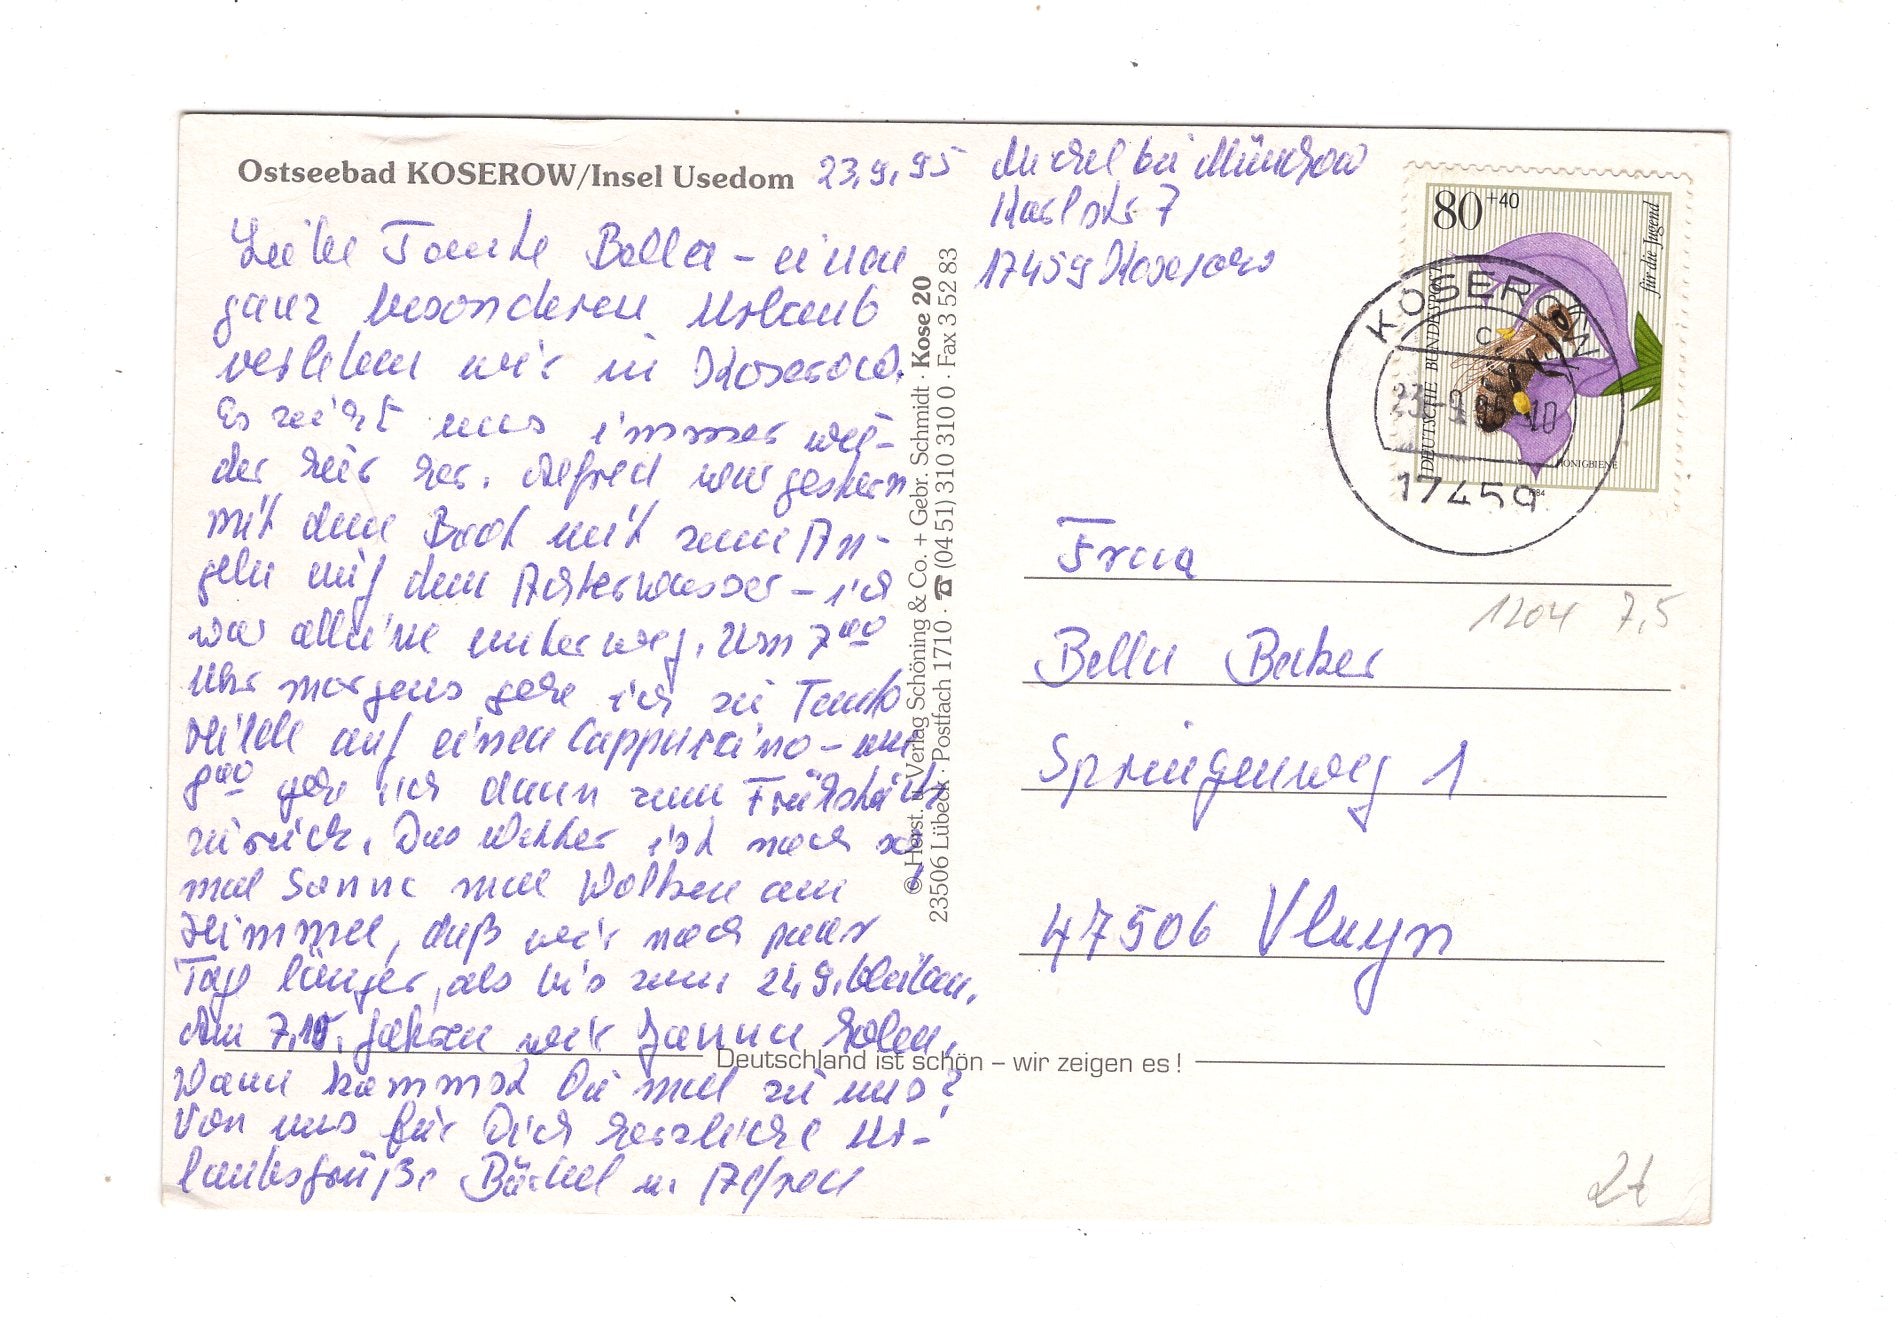 Ostseebad KOSEROW/Insel Usedom 23.9.95
Liebe Tante Bella – einen
ganz besonderen Urlaub
verleben wir in Koserow.
Es zieht uns immer wie-
der hier her. Alfred war gestern
mit dem Boot mit zum An-
geln auf dem Achterwasser – ich
war alleine unterweg. Um 7⁰⁰
Uhr morgens gehe ich zu Tante
Hilde auf einen Cappuccino – um
8⁰⁰ gehe ich dann zum Frühstück
zurück. Das Wetter ist noch so
mal Sonne mal Wolken am
Himmel, daß wir noch paar
Tage länger, als bis zum 24.9. bleiben.
Am 7.10. fahren wir Janna holen.
Wann kommst Du mal zu uns?
Von uns für Dich herzliche Ur-
laubsgrüße u. Alfred
© Horst. u. Verlag Schöning & Co. + Gebr. Schmidt · Kose 20
23506 Lübeck · Postfach 1710 · ☎ (04 51) 310 310 0 · Fax 3 52 83
Michel bei Münchow
Karlstr 7
17459 Koserow
80 +40
für die Jugend
DEUTSCHE BUNDESPOST
HONIGBIENE
1984
KOSEROW
c
23.-9.95-10
17459
Frau
1204 7,5
Bella Becker
Springenweg 1
47506 Vluyn
Deutschland ist schön – wir zeigen es !